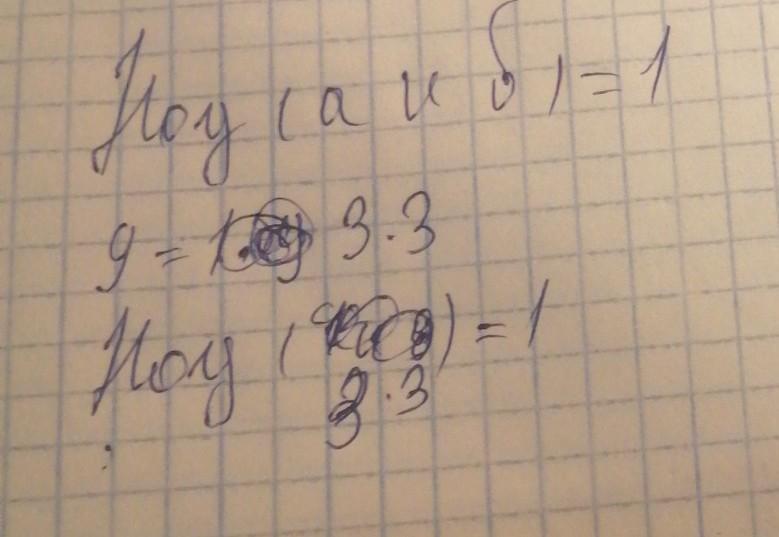 Ноу (а и б) = 1
9 = 3·3
Ноу ( ) = 1
3·3